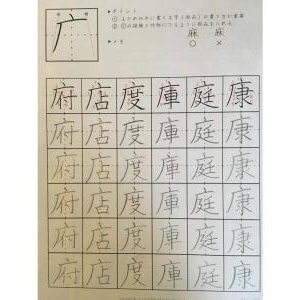 广
▸ポイント
麻 麻
○ ×
▸メモ
府 店 度 庫 庭 康
府 店 度 庫 庭 康
府 店 度 庫 庭 康
府 店 度 庫 庭 康
府 店 度 庫 庭 康
府 店 度 庫 庭 康